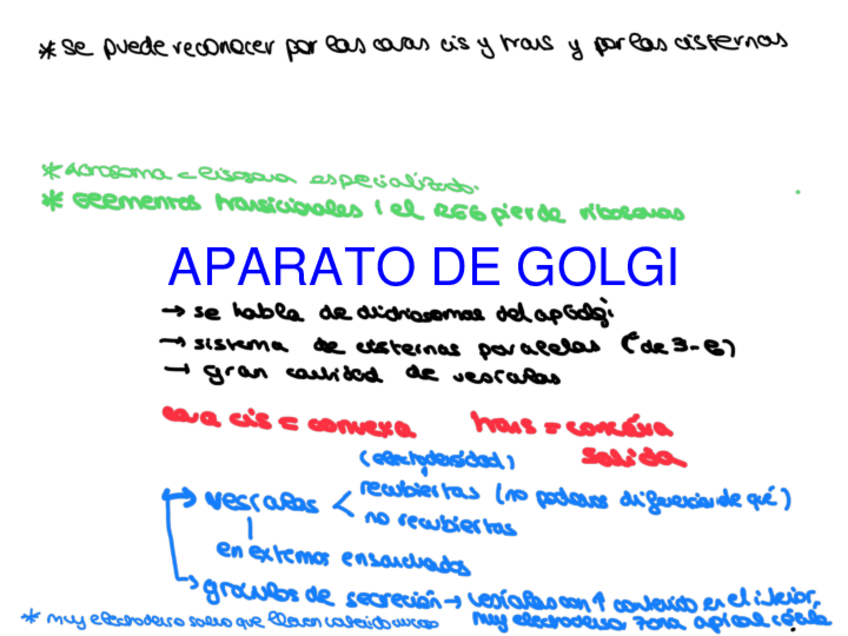 * se puede reconocer por las caras cis y trans y por las cisternas
* Acrosoma = lisosoma especializado.
* Elementos transicionales / el REG pierde ribosomas
APARATO DE GOLGI
→ se habla de dictiosomas del ap Golgi
→ sistema de cisternas paralelas (de 3-8)
→ gran cantidad de vesículas
cara cis = convexa trans = concáva
salida
(electrodensidad)
→ vesículas < recubiertas (no podemos diferenciar de qué)
no recubiertas
en extremos ensanchados
→ gránulos de secreción → vesículas con ↑ contenido en el interior,
muy electrodenso. zona apical célula
* muy electrodenso salvo que lleven contenido mucoso